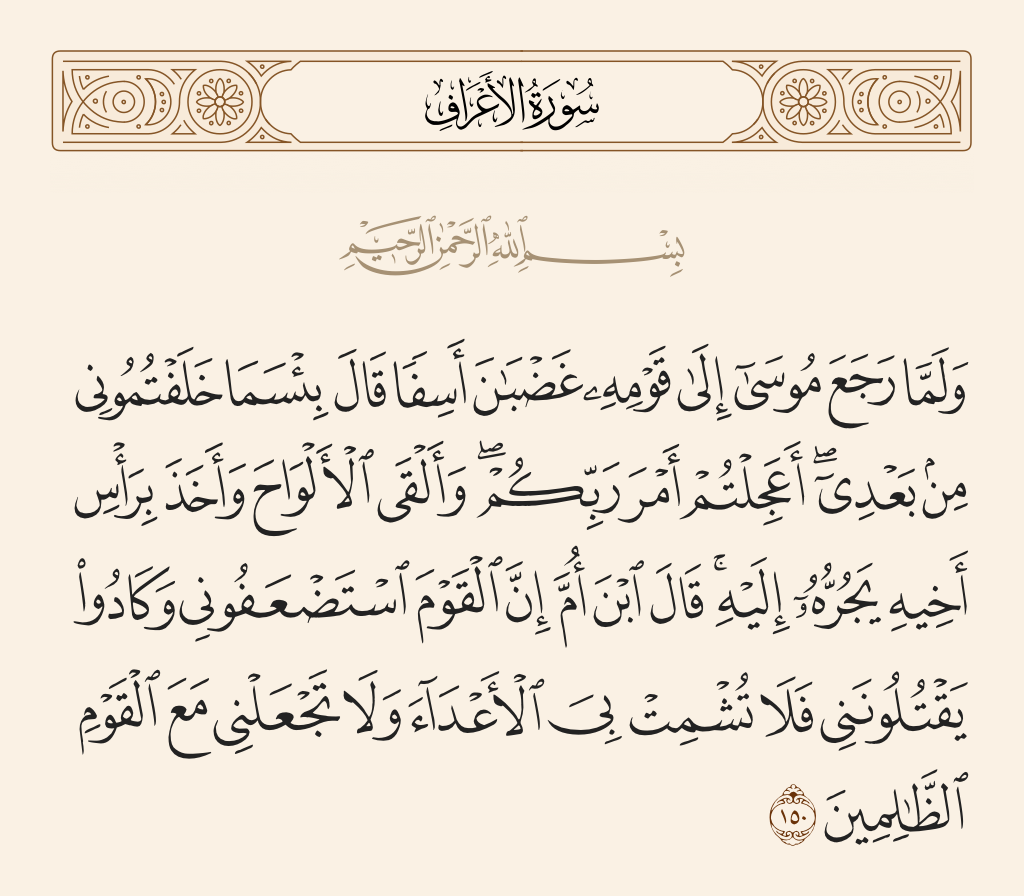 سُورَةُ الأَعْرَافِ
بِسْمِ ٱللَّهِ ٱلرَّحْمَٰنِ ٱلرَّحِيمِ
وَلَمَّا رَجَعَ مُوسَىٰٓ إِلَىٰ قَوْمِهِۦ غَضْبَٰنَ أَسِفًا قَالَ بِئْسَمَا خَلَفْتُمُونِى
مِنۢ بَعْدِىٓ ۖ أَعَجِلْتُمْ أَمْرَ رَبِّكُمْ ۖ وَأَلْقَى ٱلْأَلْوَاحَ وَأَخَذَ بِرَأْسِ
أَخِيهِ يَجُرُّهُۥٓ إِلَيْهِ ۚ قَالَ ٱبْنَ أُمَّ إِنَّ ٱلْقَوْمَ ٱسْتَضْعَفُونِى وَكَادُوا۟
يَقْتُلُونَنِى فَلَا تُشْمِتْ بِىَ ٱلْأَعْدَآءَ وَلَا تَجْعَلْنِى مَعَ ٱلْقَوْمِ
ٱلظَّٰلِمِينَ ١٥٠